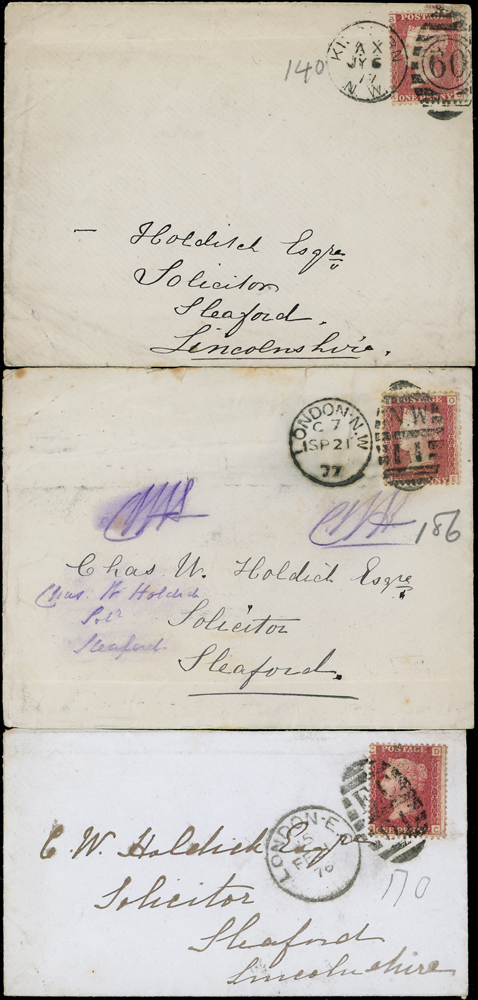 POSTAGE
ONE PENNY
60
A X
JY 6
77
N. W.
140
Holditch Esqre
Solicitor
Sleaford.
Lincolnshire.
POSTAGE
LONDON-N.W
C 7
SP 21
77
N.W.
11
186
Chas W. Holdich Esqre
Chas. W Holdich
Solr
Sleaford
Solicitor
Sleaford.
POSTAGE
ONE PENNY
LONDON-E.C
5
FE
78
170
C. W. Holdich Esqre
Solicitor
Sleaford
Lincolnshire